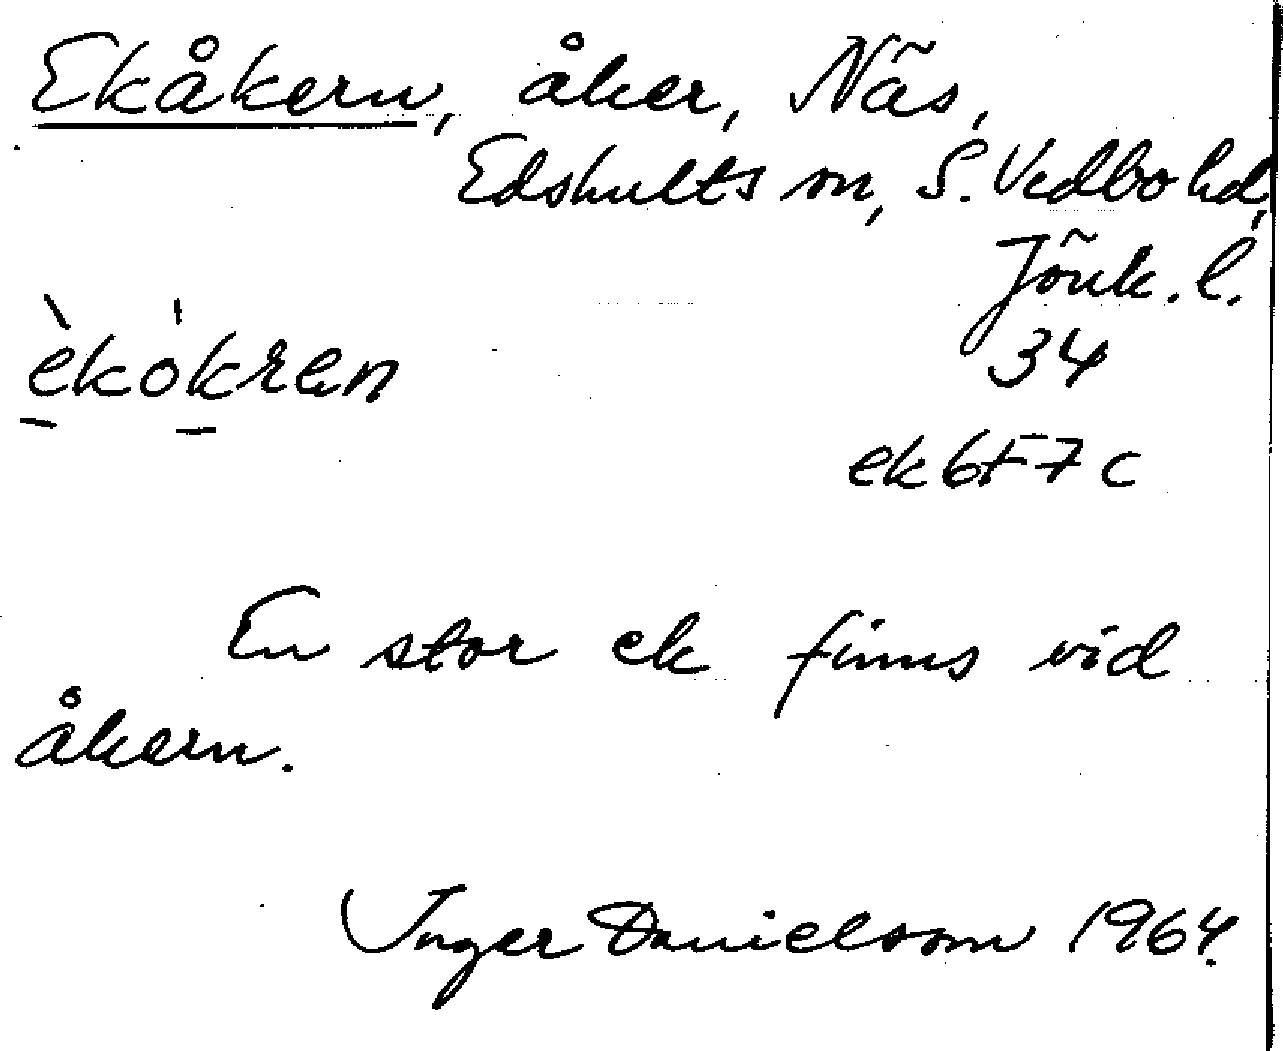 Ekåkern, åker, Näs,
Edshults sn, S. Vedbo hd,
Jönk. l.
èkòkren
34
ek 6F7c
En stor ek finns vid
åkern.
Inger Danielsson 1964.